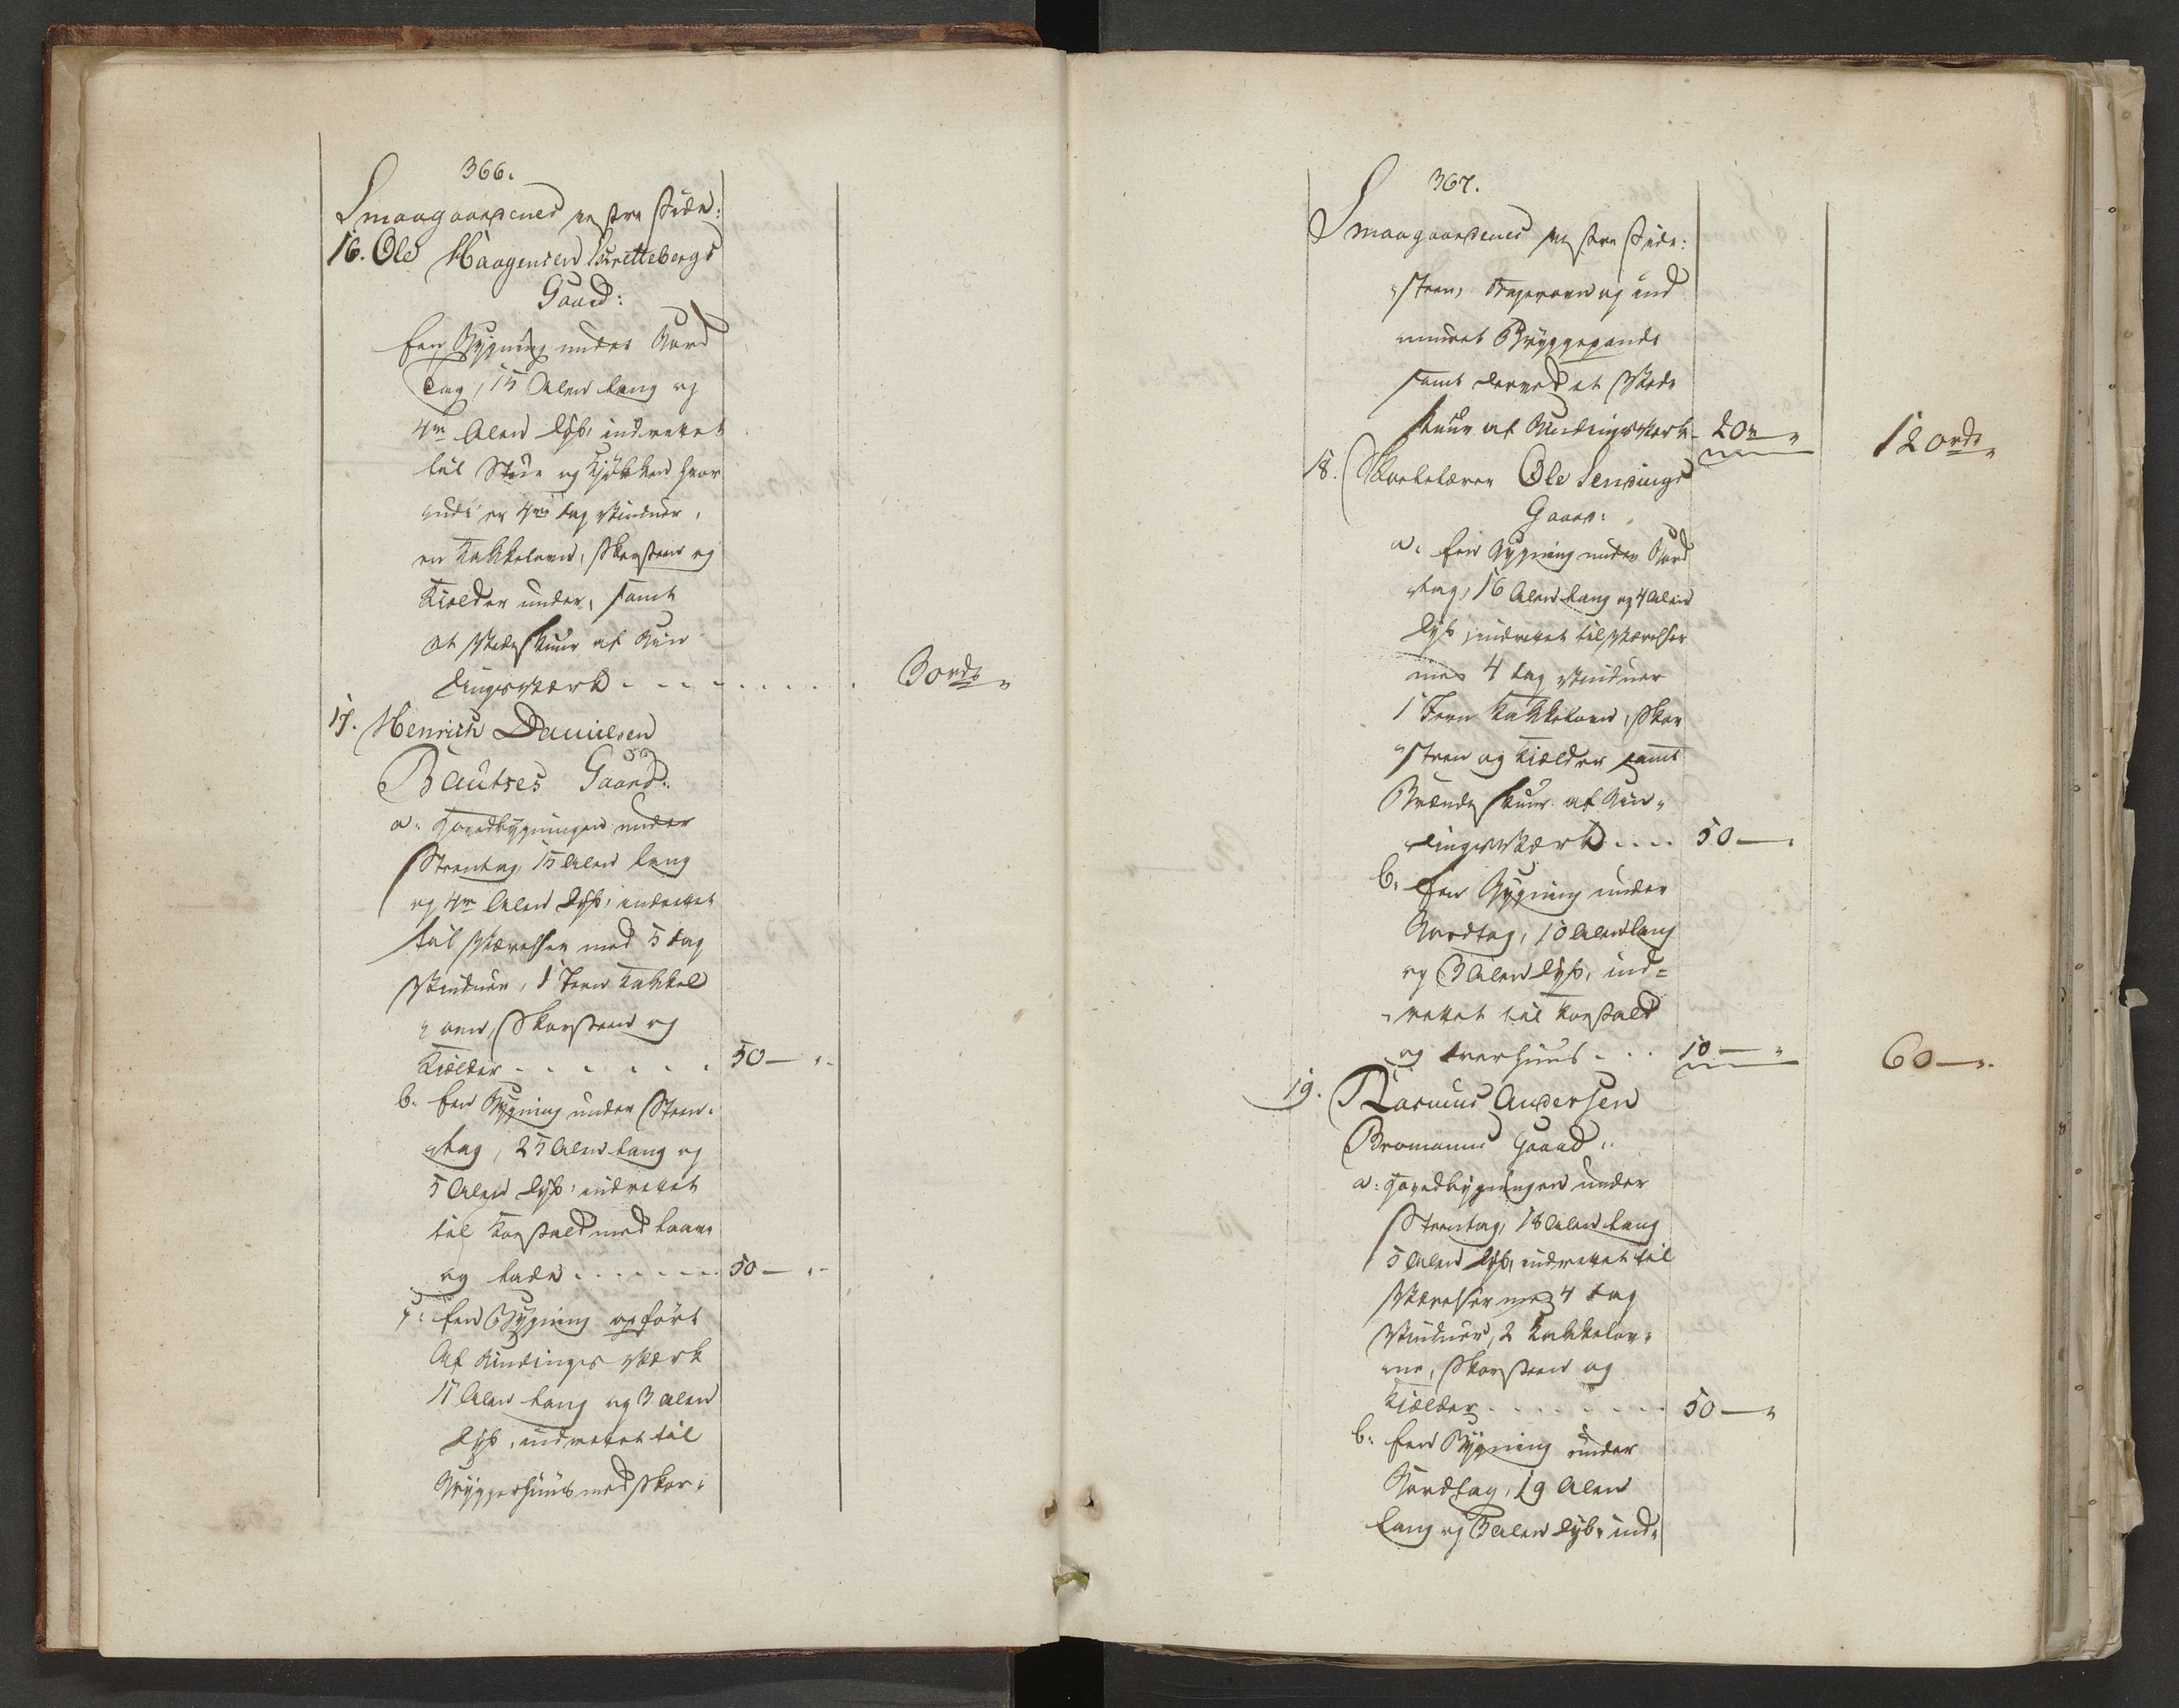 366.
Smaagaardenes østre Side:
16. Ole Haagensen Brettebergs
Gaard:
Een Bygning under Bord
tag, 15 Alen lang og
4re Alen dyb, indrettet
til Stue og Kjøkken hvor
udi er 4re fag Vinduer,
en Kakkelovn, Skorsteen og
Kielder under, samt
et Vedeskuur af Bin
dingsværk . . . . . . . . 30 rd
17. Henrich Danielsen
Bautses Gaard:
a. Hovedbygningen under
Steentag, 15 Alen lang
og 4re Alen dyb, indrettet
til Værelser med 5 fag
Vinduer, 1 Jern Kakkel
ovn, Skorsteen og
Kielder . . . . . . 50 —
b. Een Bygning under Steen-
tag, 25 Alen lang og
5 Alen dyb, indrettet
til Koestald med Laave
og Lade . . . . . . 50 —
c. Een Bygning opført
Af Bindings Værk
11 Alen lang og 3 alen
dyb, indrettet til
Bryggerhuus med Skor-
367.
Smaagaardenes østre Side:
steen, Bagerovn og ind
muuret Bryggepande
samt derved et Vede
skuur af Bindingsværk 20 — 120 rd
18. Ole Sensings
Gaard:
a. Een Bygning under Bord
tag, 16 Alen lang og 4 Alen
dyb, indrettet til Værelser
med 4 fag Vinduer
1 Jern Kakkelovn, Skor
steen og Kielder samt
Brændeskuur af Bin-
dingsværk . . . . 50 —
b. Een Bygning under
Bordtag, 10 Alen lang
og 3 Alen dyb, ind-
rettet til Koestald
og Foerhuus . . . 10 — 60 —
19. Rasmus Andersen
Bromanns Gaard:
a. Hovedbygningen under
Steentag, 18 Alen lang
5 Alen dyb, indrettet til
Værelser med 4 fag
Vinduer, 2 Kakkelov-
ne, Skorsteen og
Kielder . . . . . . . 50 —
b. Een Bygning under
Bordtag, 19 Alen
lang og 3 Alen dyb, ind-